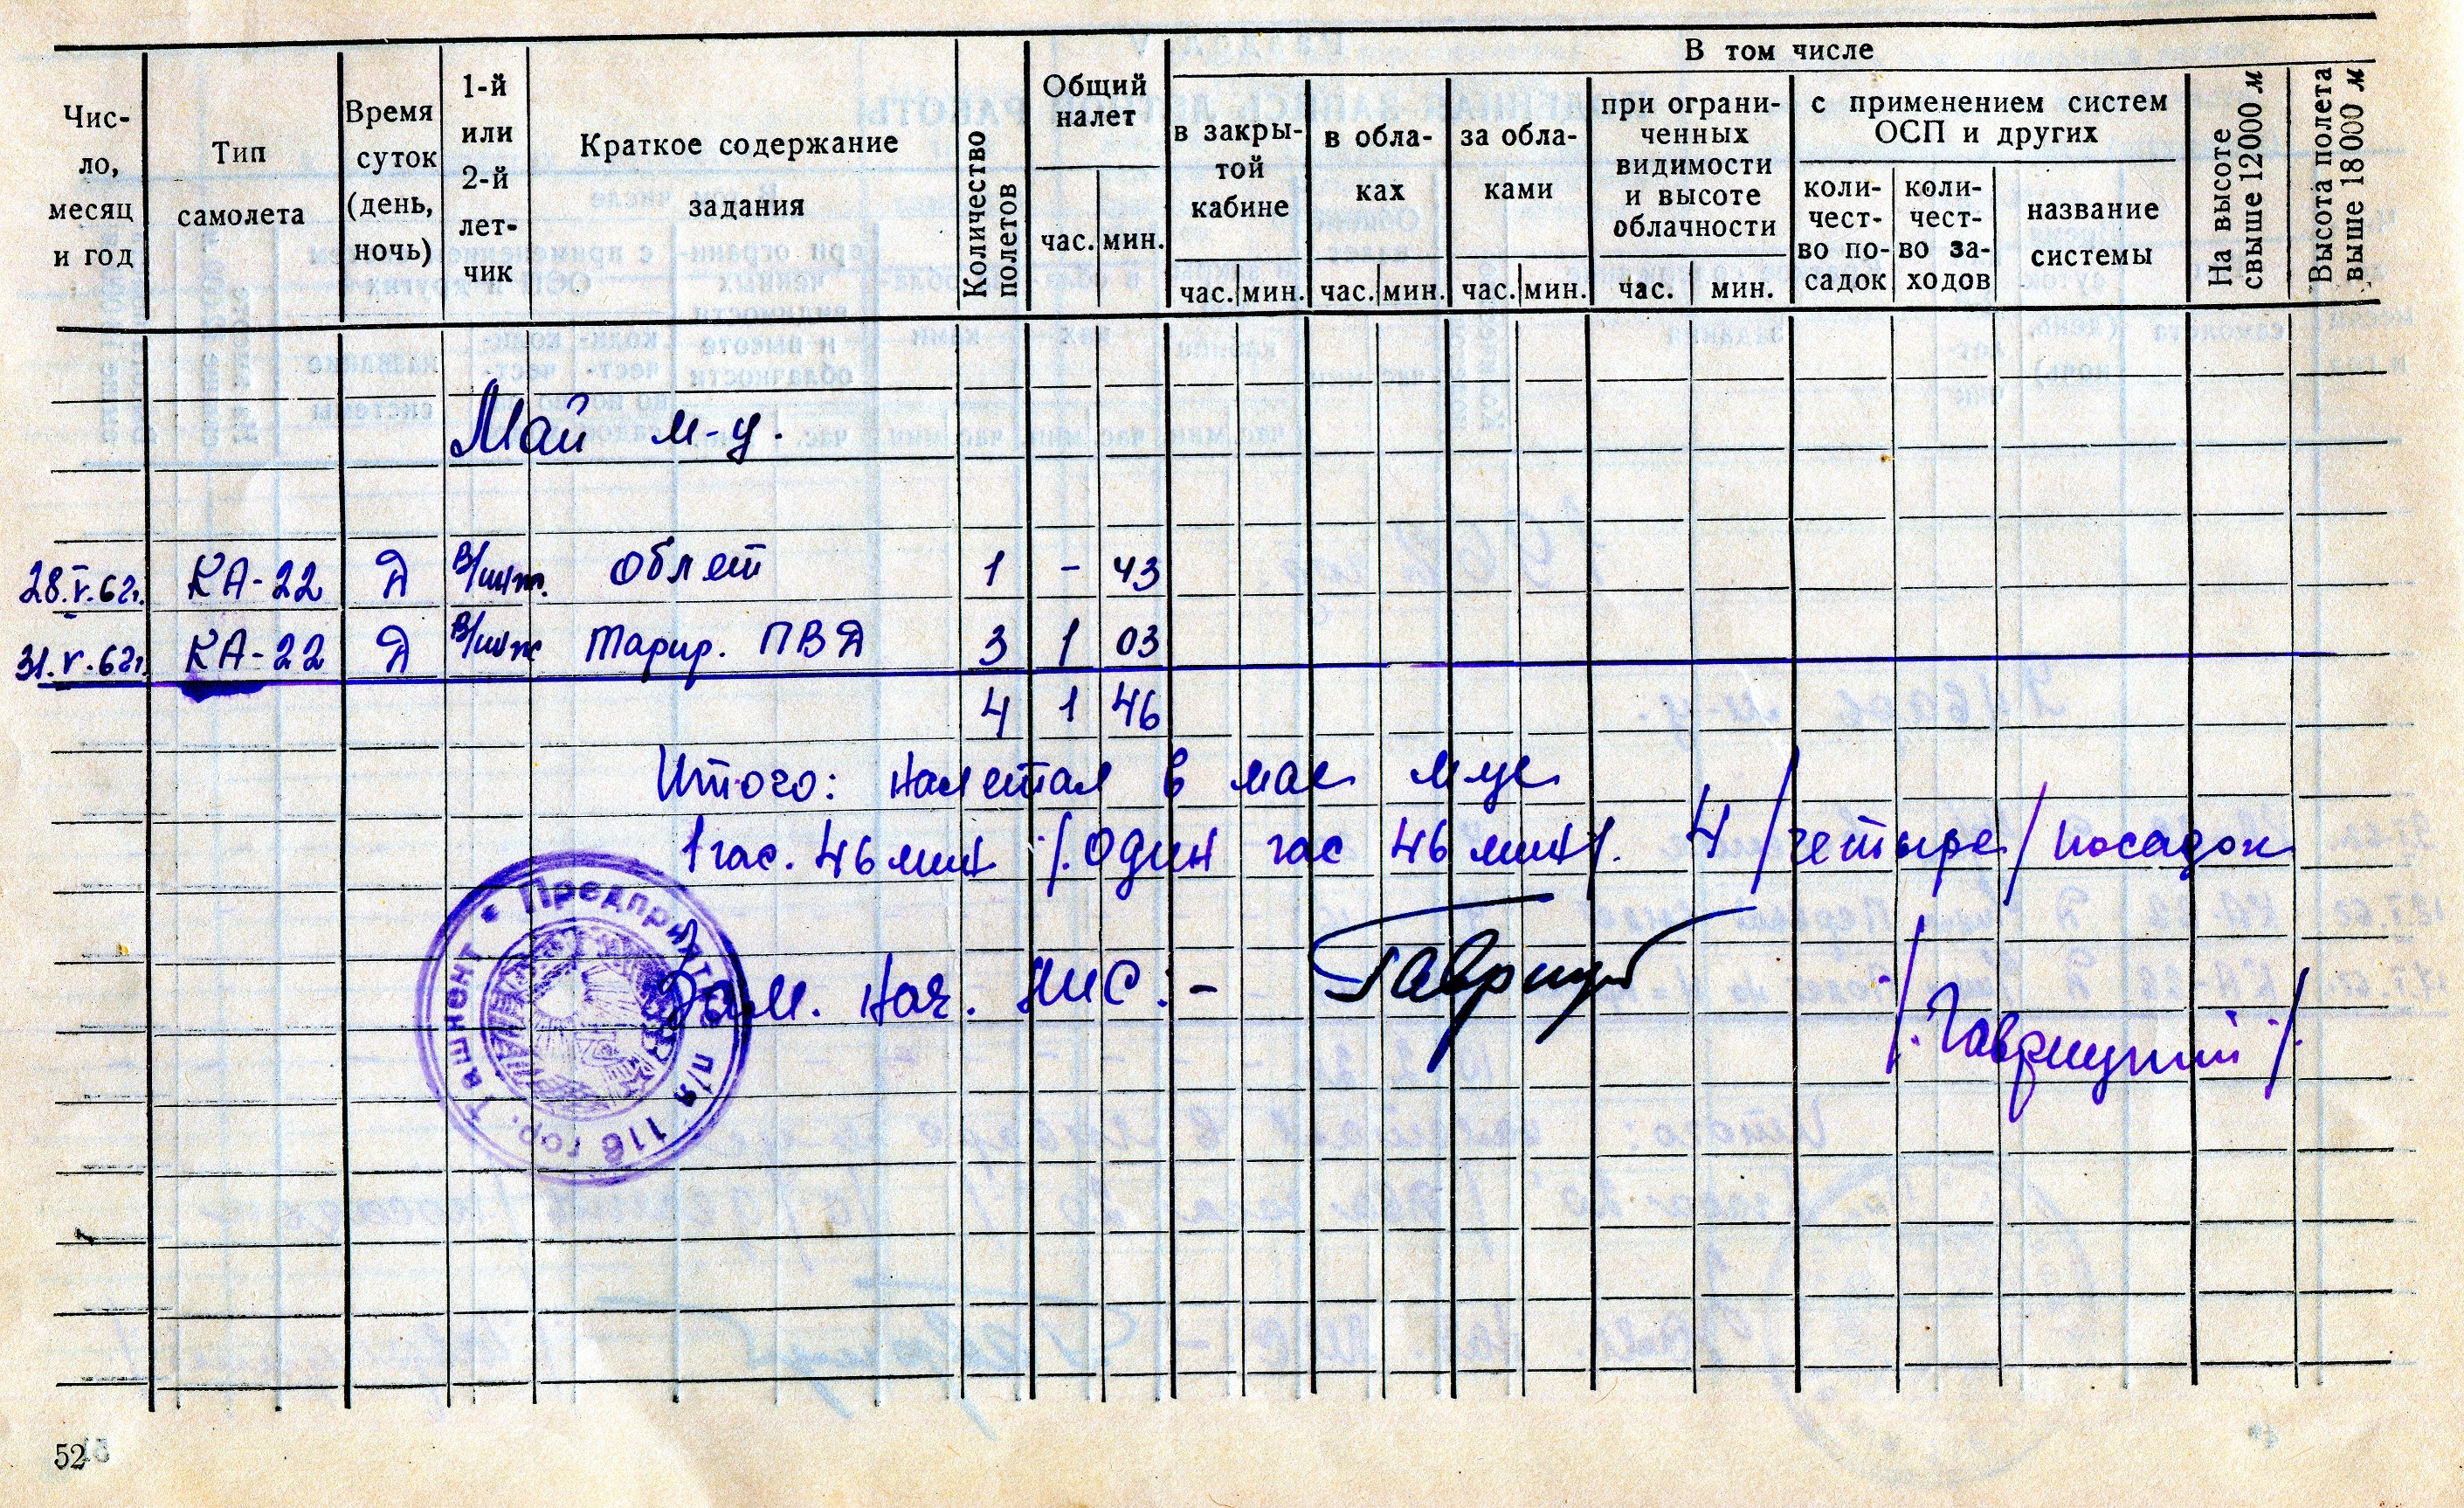 Чис-
ло,
месяц
и год
Тип
самолета
Время
суток
(день,
ночь)
1-й
или
2-й
лет-
чик
Краткое содержание
задания
Количество
полетов
Общий
налет
час. мин.
В том числе
в закры-
той
кабине
час. мин.
в обла-
ках
час. мин.
за обла-
ками
час. мин.
при ограни-
ченных
видимости
и высоте
облачности
час. мин.
с применением систем
ОСП и других
коли-
чест-
во по-
садок
коли-
чест-
во за-
ходов
название
системы
На высоте
свыше 12000 м
Высота полета
выше 18 000 м
Май м-ц.
28.V.62г. КА-22 Д Б/инж. Облет 1 - 43
31.V.62г. КА-22 Д Б/инж Тарир. ПВД 3 1 03
4 1 46
Итого: налетал в мае м-це
1 час. 46 мин /.один час 46 мин/. 4 /четыре/ посадок
Зам. Нач. ЛИС:-
/.Гаврицкий/.
Предприятие п/я 116 гор. Ташкент
52